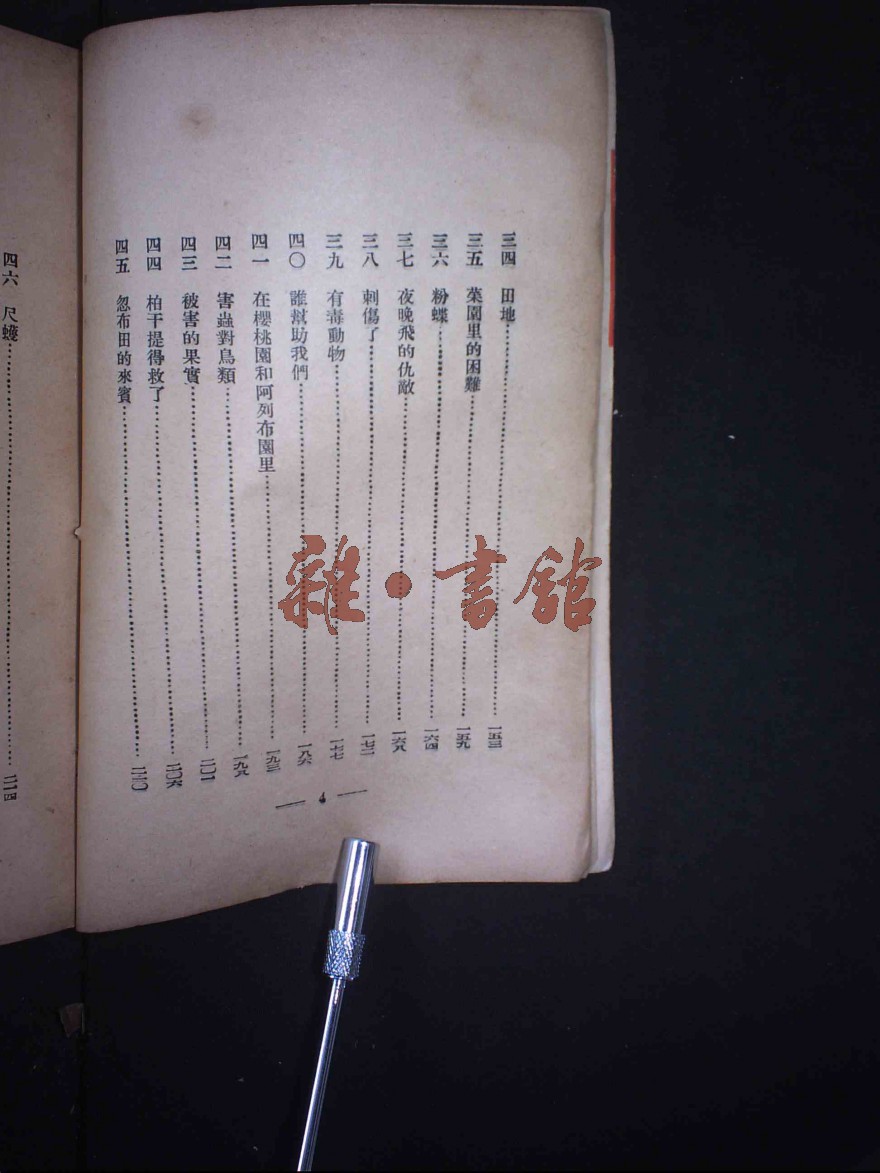 三四　田地……一五三
三五　菜園里的困難……一五九
三六　粉蝶……一六四
三七　夜晚飛的仇敵……一六八
三八　刺傷了……一七二
三九　有毒動物……一七七
四〇　誰幫助我們……一八六
四一　在櫻桃園和阿列布園里……一九三
四二　害蟲對鳥類……一九八
四三　被害的果實……二〇一
四四　柏干提得救了……二〇六
四五　忽布田的來賓……二一〇
四六　尺蠖……二一四
雜·書館